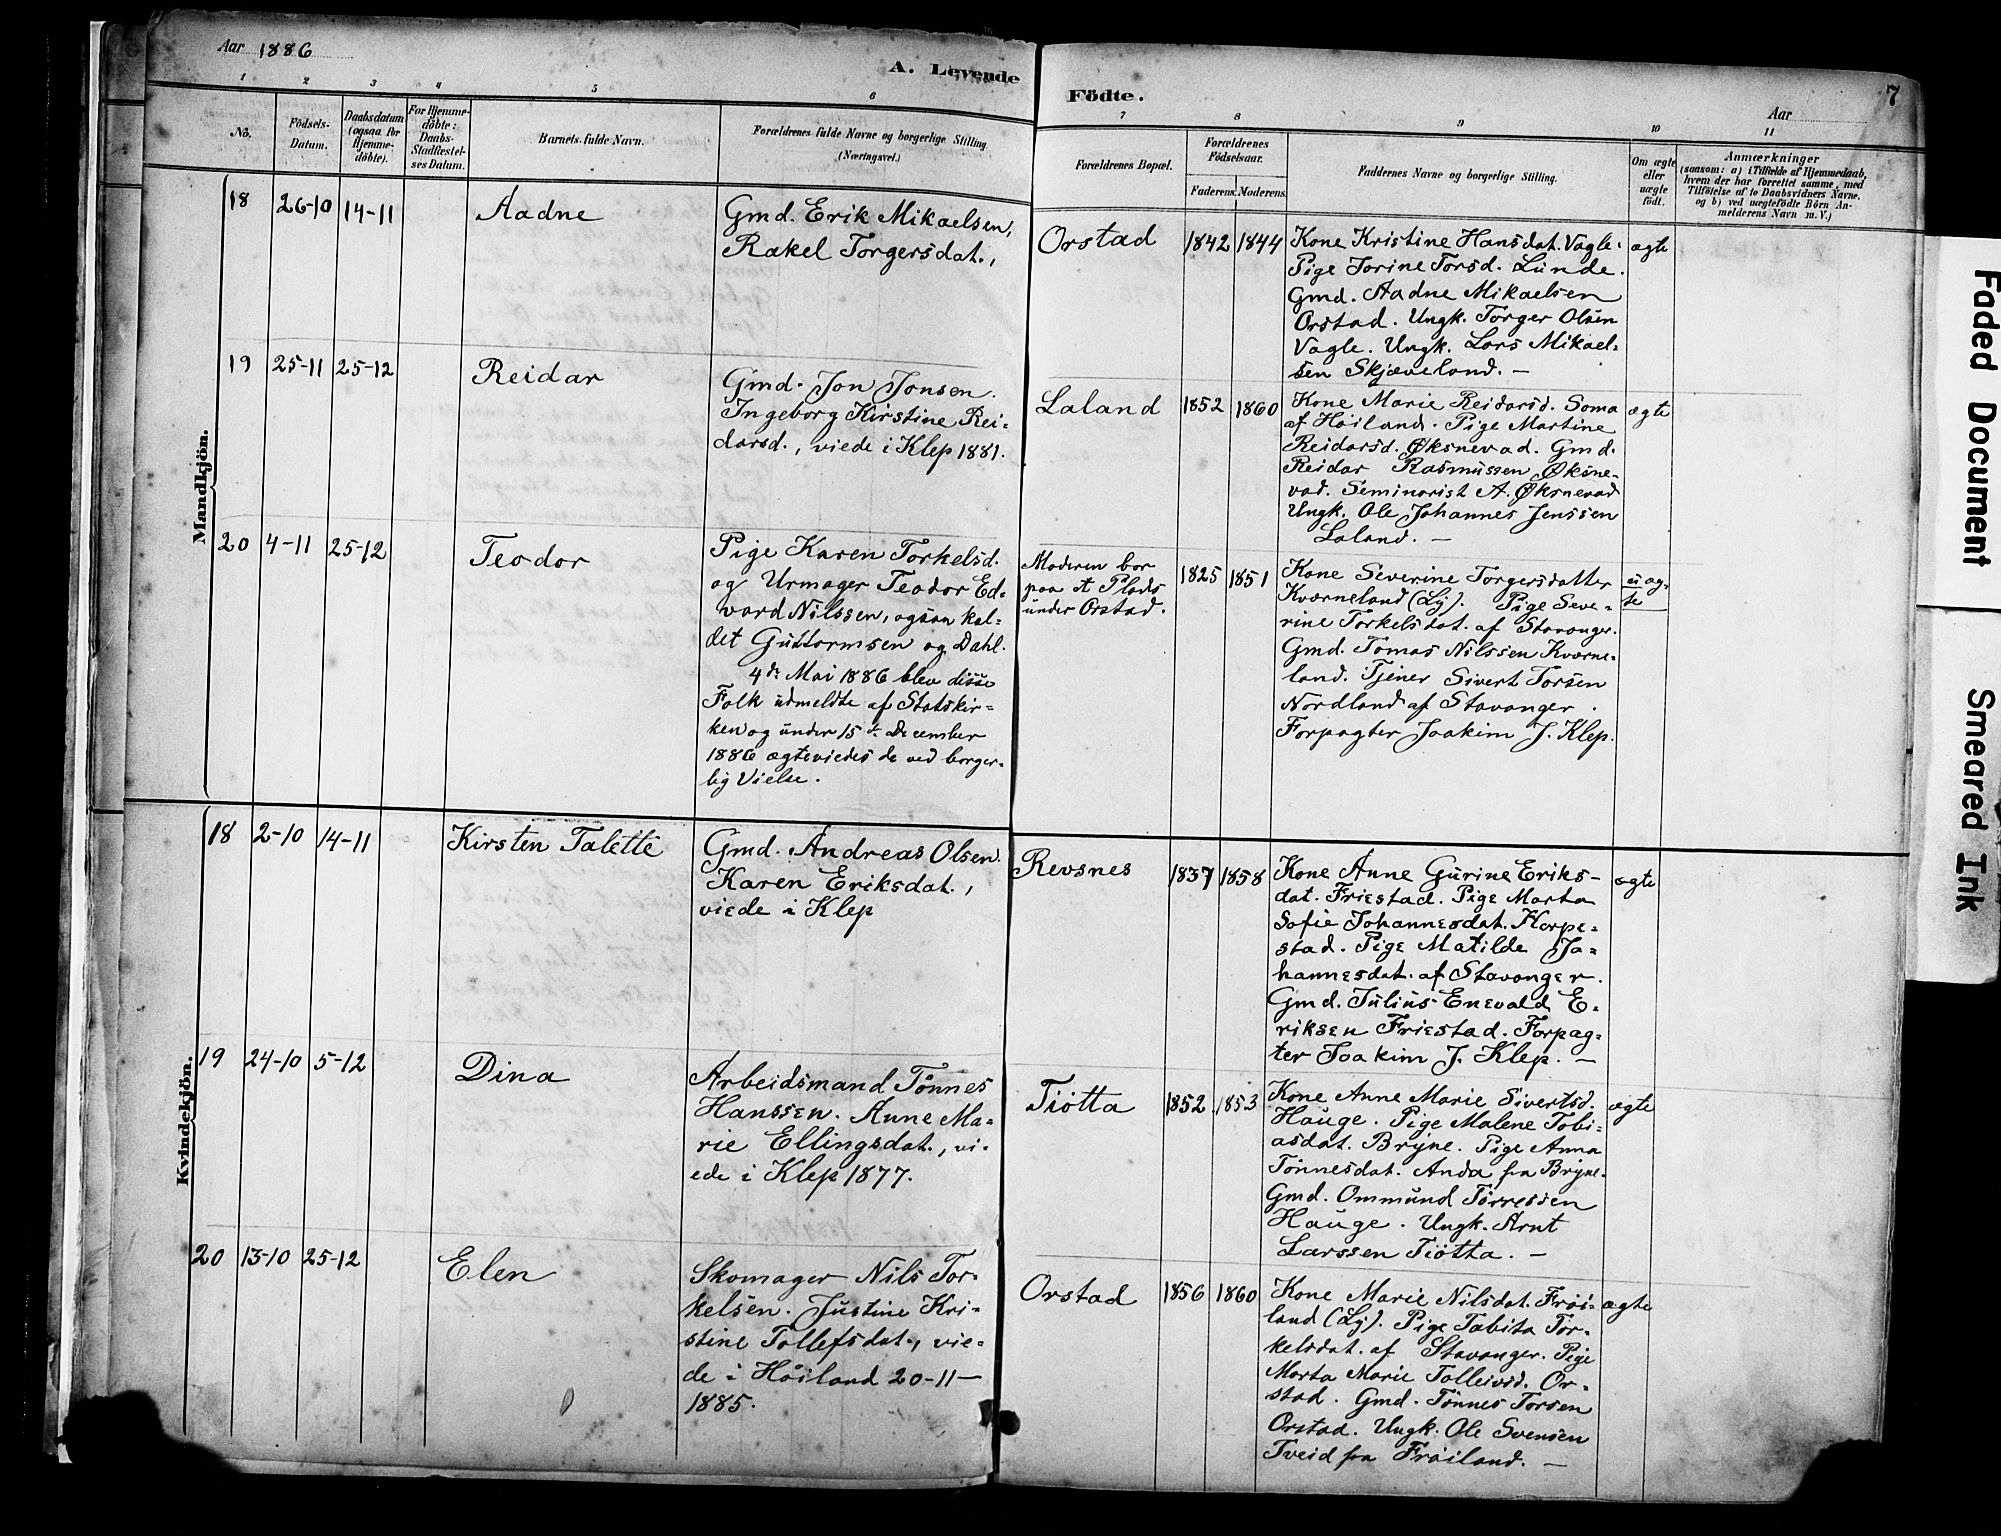 Aar 1886
A. Levende
1 2 3 4 5 6
No.
Födsels-
Datum.
Daabsdatum
(ogsaa for
Hjemme-
döbte).
For Hjemme-
döbte:
Daabs-
Stadfæstel-
ses Datum.
Barnets fulde Navn.
Forældrenes fulde Navne og borgerlige Stilling
(Næringsvei.)
Födte.
7
Aar
7 8 9 10 11
Forældrenes Bopæl.
Forældrenes
Födselsaar.
Faderens. Moderens.
Faddernes Navne og borgerlige Stilling.
Om ægte
eller
uægte
födt.
Anmærkninger
(saasom: a) i Tilfælde af Hjemmedaab,
hvem der har forrettet samme, med
Tilföielse af to Daabsvidners Navne.
og b) ved uægtefödte Börn An-
melderens Navn m. V.)
Mandkjön.
18 26-10 14-11 Aadne
Gmd. Erik Mikaelsen,
Rakel Torgersdat.,
Orstad 1842 1844
Kone Kristine Hansdat. Vagle.
Pige Jorine Torsd. Lunde.
Gmd. Aadne Mikaelsen
Orstad. Ungk. Torger Olsen
Vagle. Ungk. Lars Mikael-
sen Skjæveland. —
ægte
19 25-11 25-12 Reidar
Gmd. Jon Jonsen.
Ingeborg Kirstine Rei-
darsd., viede i Klep 1881.
Laland 1852 1860
Kone Marie Reidarsd. Soma
af Höiland. Pige Martine
Reidarsd. Øksnevad. Gmd.
Reidar Rasmussen Øksne-
vad. Seminarist A. Øksnevad
Ungk. Ole Johannes Jenssen
Laland. —
ægte
20 4-11 25-12 Teodor
Pige Karen Torkelsd.
og Urmager Teodor Ed-
vard Nilssen, ogsaa kal-
det Guttormsen og Dahl.
4de Mai 1886 blev disse
Folk udmeldte af Statskir-
ken og under 15de December
1886 ægteviedes de ved borger-
lig Vielse.
Moderen bor
paa et Plads
under Orstad.
1825 1851
Kone Severine Torgersdatter
Kværneland (Ly). Pige Seve-
rine Torkelsdat. af Stavanger.
Gmd. Tomas Nilssen Kværne-
land. Tjener Sivert Torsen
Nordland af Stavanger.
Forpagter Joakim J. Klep.
uæg-
te
Kvindekjön.
18 2-10 14-11 Kirsten Talette
Gmd. Andreas Olsen.
Karen Eriksdat.,
viede i Klep
Revsnes 1837 1858
Kone Anne Gurine Eriks-
dat. Friestad. Pige Marta
Sofie Johannesdat. Horpe-
stad. Pige Matilde Jo-
hannesdat. af Stavanger.
Gmd. Julius Enevald E-
riksen Friestad. Forpag-
ter Joakim J. Klep. —
ægte
19 24-10 5-12 Dina
Arbeidsmand Tönnes
Hanssen. Anne Ma-
rie Ellingsdat., vi-
ede i Klep 1877.
Tiötta 1852 1853
Kone Anne Marie Sivertsd.
Hauge. Pige Malene Tobi-
asdat. Bryne. Pige Anna
Tönnesdat. Anda fra Bryne.
Gmd. Ommund Törressen
Hauge. Ungk. Arnt
Larssen Tiötta. —
ægte
20 13-10 25-12 Elen
Skomager Nils Tor-
kelsen. Justine Kri-
stine Tollefsdat., vie-
de i Höiland 20-11-
1885.
Orstad 1856 1860
Kone Marie Nilsdat. Fröi-
land (Ly). Pige Tabita Tor-
kelsdat. af Stavanger. Pige
Marta Marie Folleivsd. Or-
stad. Gmd. Tönnes Torsen
Orstad. Ungk. Ole Svensen
Tveid fra Fröiland. —
ægte
Faded Document
Smeared Ink